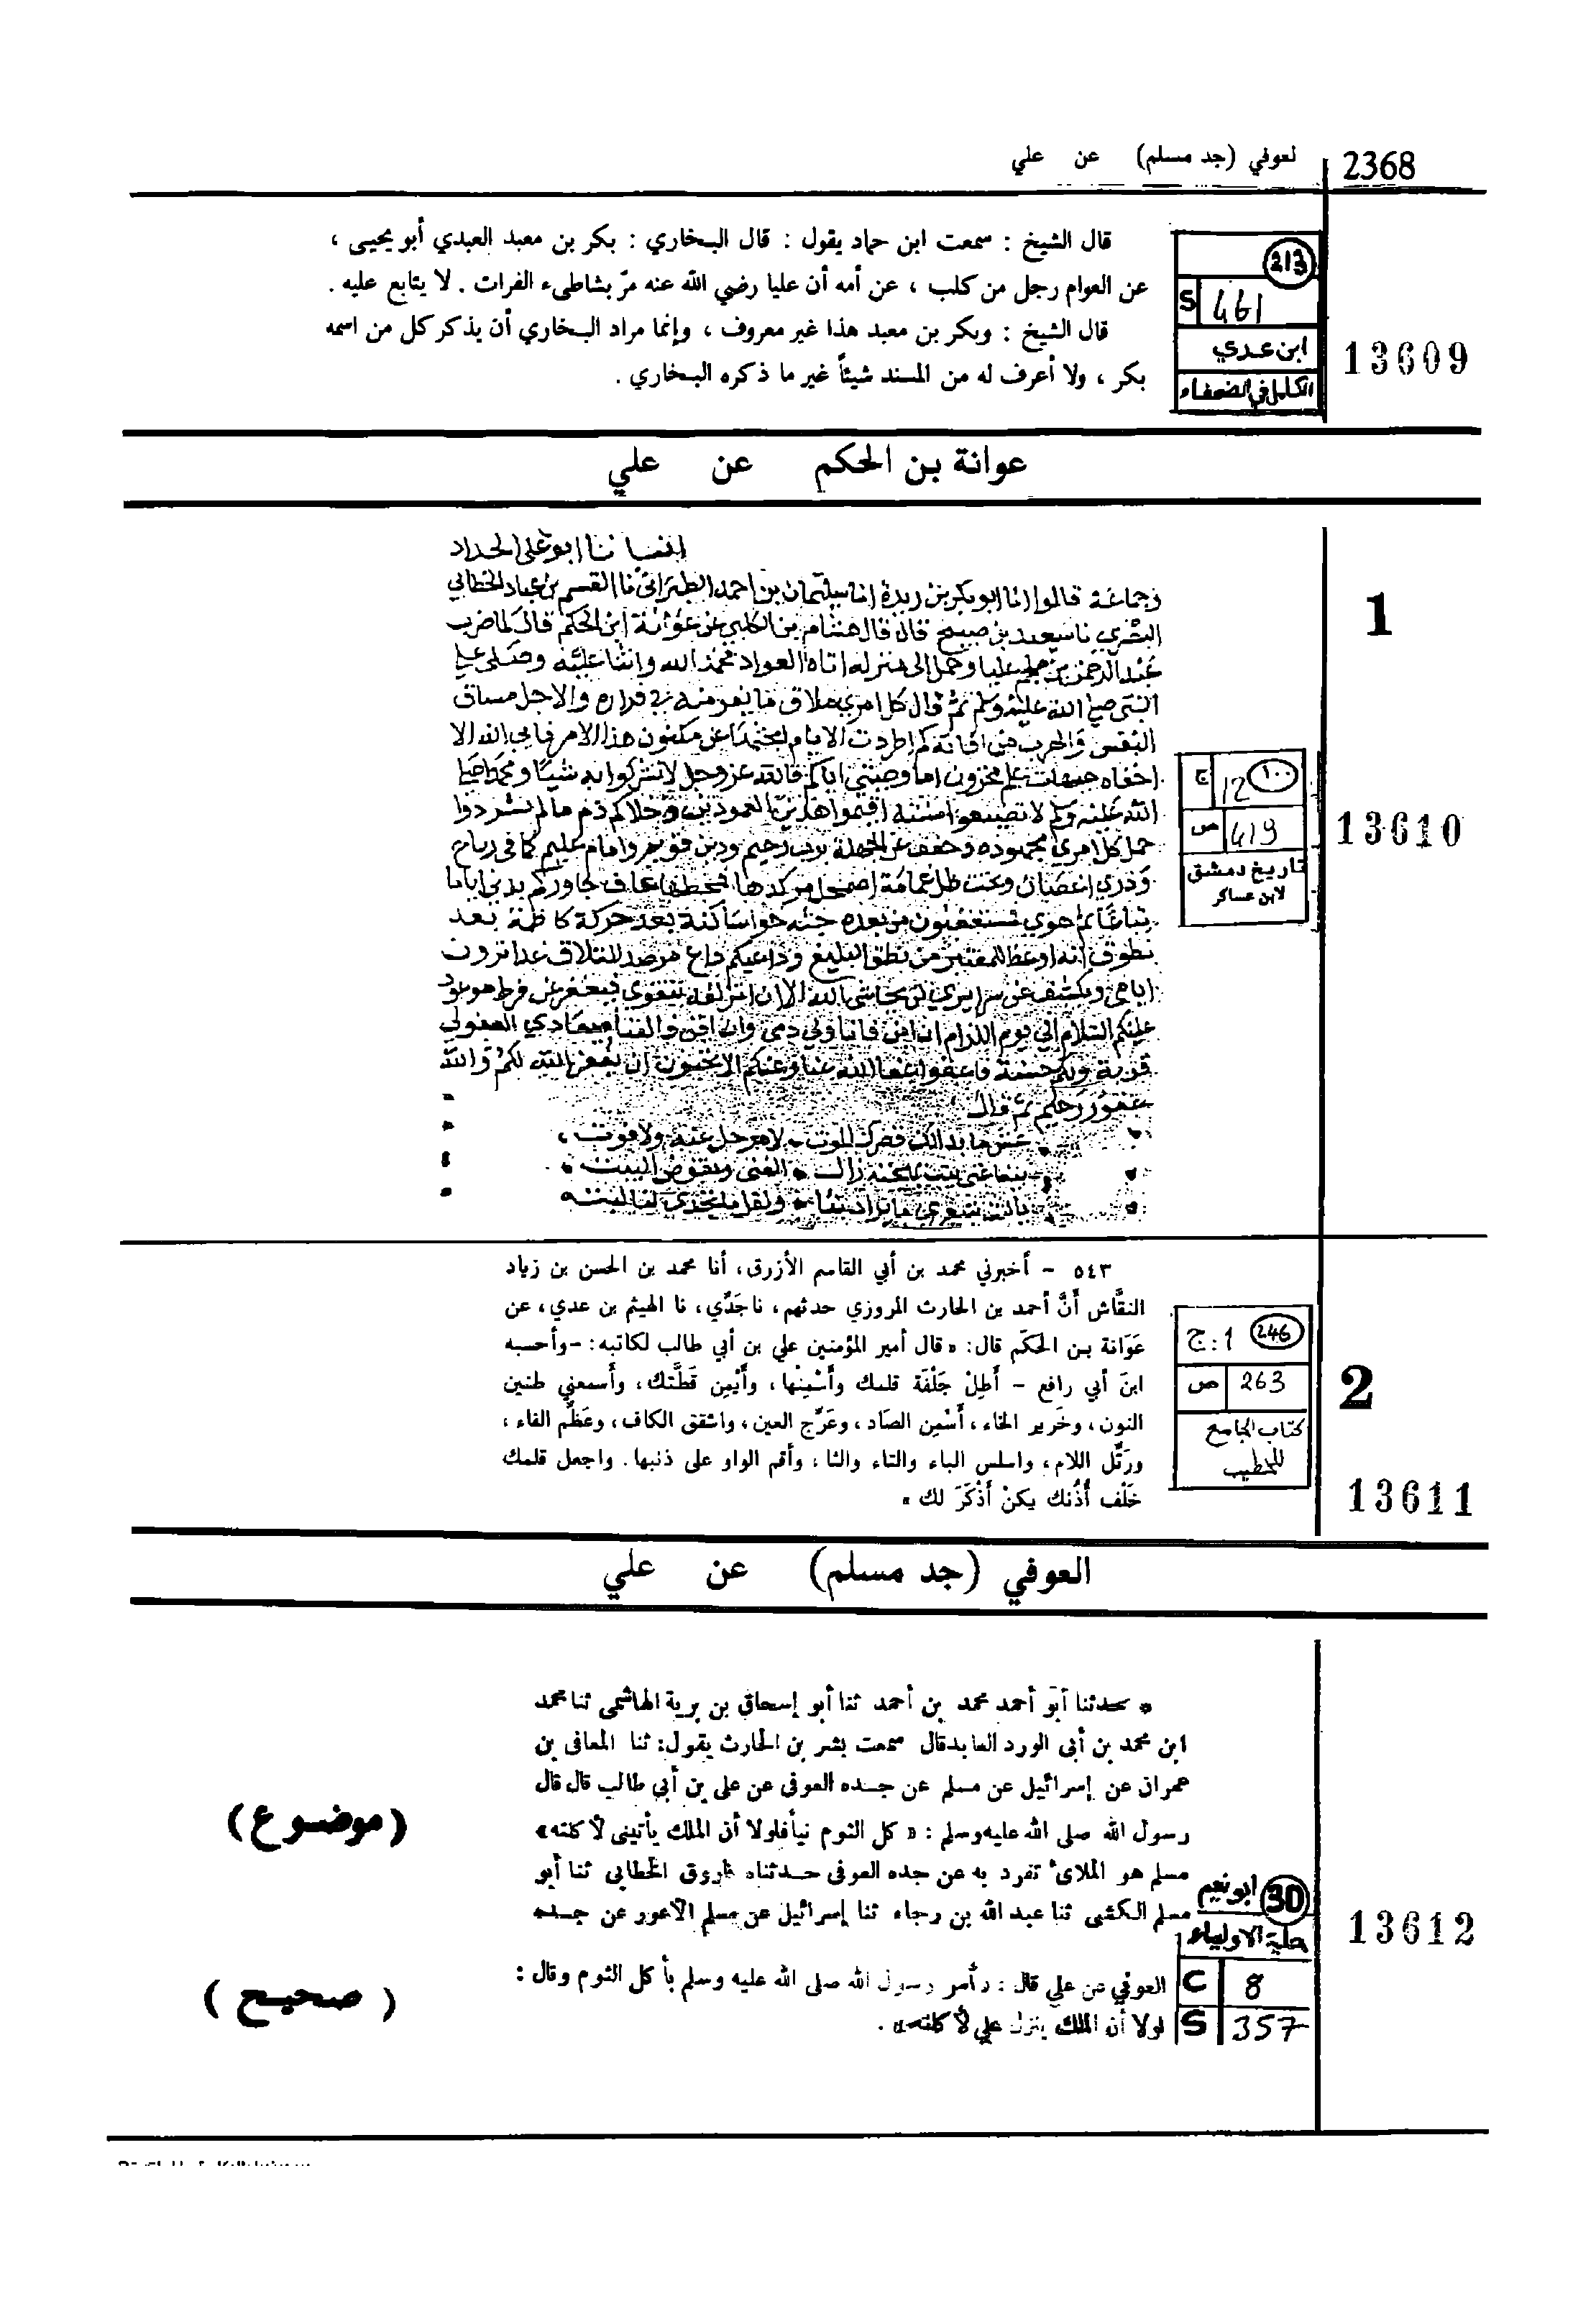 2368
لعوفي (جد مسلم) عن علي
213
S 461
ابن عدي
الكامل في الضعفاء
13609
قال الشيخ : سمعت ابن حماد يقول : قال البخاري : بكر بن معبد العبدي أبو يحيى ،
عن العوام رجل من كلب ، عن أمه أن عليا رضي الله عنه مرّ بشاطىء الفرات . لا يتابع عليه .
قال الشيخ : وبكر بن معبد هذا غير معروف ، وإنما مراد البخاري أن يذكر كل من اسمه
بكر ، ولا أعرف له من المسند شيئاً غير ما ذكره البخاري .
عوانة بن الحكم عن علي
1
ج 12 ١٠٠
ص 419
تاريخ دمشق
لابن عساكر
13610
ابو علي الحداد
وجماعة قالوا انا ابو بكر بن ريذة انا سليمان بن احمد الطبراني نا القسم بن عباد الخطابي
البصري نا سعيد بن صبيح قال قال هشام بن الكلبي عن عوانة ابن الحكم قال لما ضرب
عبد الرحمن بن ملجم عليا وحمل الى منزله اتاه العواد فحمد الله واثنا عليه وصلى على
النبي صلى الله عليه وسلم ثم قال كل امرئ ملاق ما يفر منه في فراره والاجل مساق
النفس والهرب من افاته كم اطردت الايام ابحثها عن مكنون هذا الامر فابى الله الا
اخفاه هيهات علم مخزون اما وصيتي اياكم فالله عز وجل لا تشركوا به شيئا ومحمدا صلى
الله عليه وسلم لا تضيعوا سنته اقيموا هذين العمودين وخلاكم ذم ما لم تشردوا
حمل كل امرئ مجهوده وخفف عن الجهلة برب رحيم ودين قويم وامام عليم كنا في رياح
وذري اغصان وتحت ظل غمامة اضمحل مركدها فمخطها عاف جاوركم بدني اياما
تباعا ثم هوى فستعقبون من بعده جثة خواء ساكنة بعد حركة كاظمة بعد
نطوق انه اوعظ للمعتبرين من نطق البليغ وداعيكم داع مرصد للتلاق غدا ترون
ايامي ويكشف عن سرايري
عليكم السلام الى يوم اللزام ان ابق فانا ولي دمي وان افن فالفنا ميعادي العفو لي
قربة ولكم حسنة فاعفوا عفا الله عنا وعنكم الا تحبون ان يغفر الله لكم والله
غفور رحيم ثم قال
عش ما بدا لك قصرك الموت لا مرحل عنه ولا فوت
بينا غنى بيت وبهجته زال الغنى وتقوض البيت
يا ليت شعري ما يراد بنا ولقل ما يجدي لنا ليت
2
246 1 : ج
ص 263
كتاب الجامع
للخطيب
13611
٥٤٣ - أخبرني محمد بن أبي القاسم الأزرق، أنا محمد بن الحسن بن زياد
النقَّاش أَنَّ أحمد بن الحارث المروزي حدثهم، نا جَدِّي، نا الهيثم بن عدي، عن
عَوَانة بن الحكَم قال: « قال أمير المؤمنين علي بن أبي طالب لكاتبه: - وأحسبه
ابنَ أبي رافع - أَطِلْ جَلْفَة قلمك وأَسْمِنْها، وأَيْمِن قَطَّتك، وأَسمعني طنين
النون، وخَرير الخاء، أَسْمِن الصَاد، وعَرِّج العين، واشقق الكاف، وعَظِّم الفاء،
ورَتِّل اللام، واسلس الباء والتاء والثا، وأقم الواو على ذنبها. واجعل قلمك
خَلْف أُذُنك يكنْ أَذْكَرَ لك »
العوفي (جد مسلم) عن علي
* حدثنا أبو أحمد محمد بن أحمد ثنا أبو إسحاق بن برية الهاشمى ثنا محمد
ابن محمد بن أبى الورد العابد قال سمعت بشر بن الحارث يقول: ثنا المعافى بن
عمران عن إسرائيل عن مسلم عن جده العوفى عن على بن أبي طالب قال قال
رسول الله صلى الله عليه وسلم : « كل الثوم نيأ فلولا أن الملك يأتينى لأكلته»
مسلم هو الملائ تفرد به عن جده العوفى حدثناه فاروق الخطابى ثنا أبو
مسلم الكشى ثنا عبد الله بن رجاء ثنا إسرائيل عن مسلم الأعور عن جده
العوفي عن علي قال : « أمر رسول الله صلى الله عليه وسلم بأكل الثوم وقال :
لولا أن الملك ينزل علي لأكلته» .
(موضوع)
(صحيح)
30 ابو نعيم
حلية الاولياء
C 8
S 357
13612